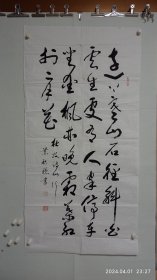 远上寒山石径斜白
雲生处有人家停车
坐爱枫林晚霜葉红
於二月花
杜牧诗山行
書
2024/04/01 23:27